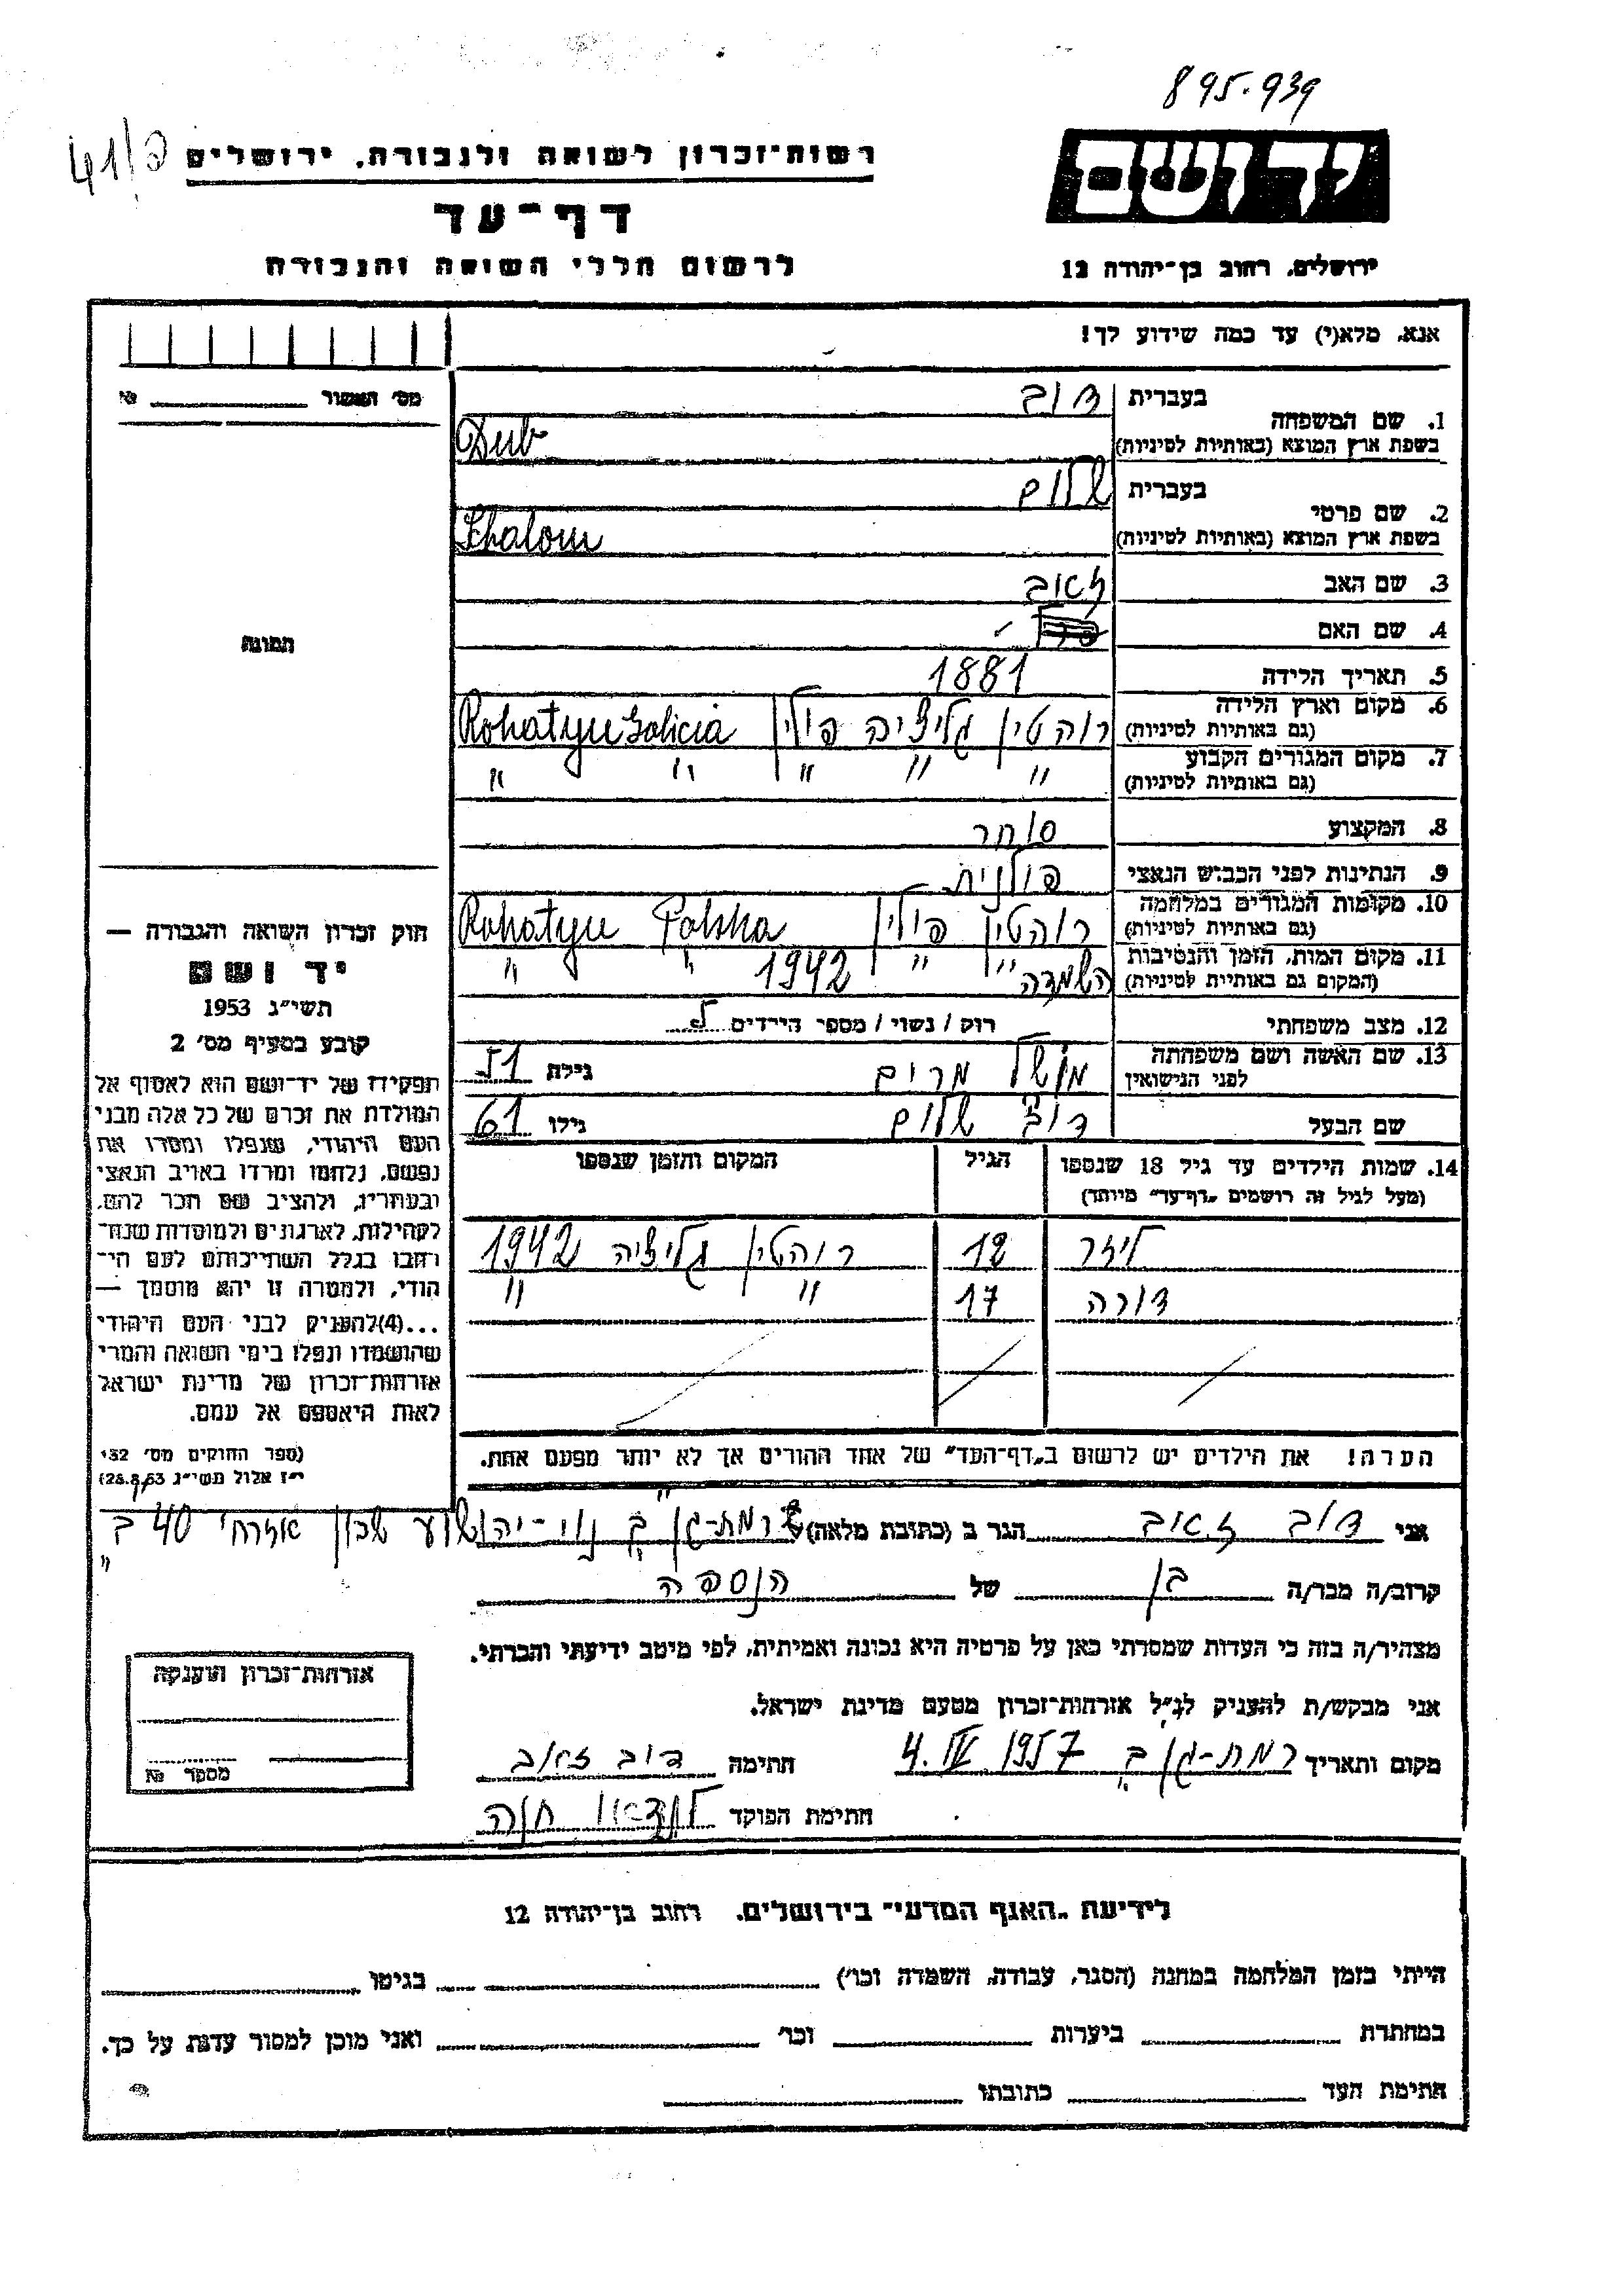 895.939
41/פ
רשות־זכרון לשואה ולגבורה, ירושלים
יד ושם
דף־עד
לרשום חללי השואה והגבורה
ירושלים, רחוב בן־יהודה 12
אנא, מלא(י) עד כמה שידוע לך!
מס׳ האשור № 
תמונה
1. שם המשפחה בעברית דוב
בשפת ארץ המוצא (באותיות לטיניות) Dub
2. שם פרטי בעברית שלום
בשפת ארץ המוצא (באותיות לטיניות) Schalom
3. שם האב זאוב
4. שם האם
5. תאריך הלידה 1881
6. מקום וארץ הלידה (גם באותיות לטיניות) רוהטין גליציה פולין Rohatyn Galicia
7. מקום המגורים הקבוע (גם באותיות לטיניות) " " " " "
8. המקצוע סוחר
9. הנתינות לפני הכבוש הנאצי פולנית
10. מקומות המגורים במלחמה (גם באותיות לטיניות) רוהטין פולין Rohatyn Polska
11. מקום המות, הזמן והנסיבות (המקום גם באותיות לטיניות) השמדה " " 1942 " "
12. מצב משפחתי רוק / נשוי / מספר הילדים 5
13. שם האשה ושם משפחתה לפני הנישואין מרים גילה 51
שם הבעל דוב שלום גילו 61
14. שמות הילדים עד גיל 18 שנספו הגיל המקום והזמן שנספו
(מעל לגיל זה רושמים „דף־עד״ מיוחד)
ליזר 12 רוהטין גליציה 1942
דורה 17 " "
הערה! את הילדים יש לרשום ב„דף־העד״ של אחד ההורים אך לא יותר מפעם אחת.
חוק זכרון השואה והגבורה —
יד ושם
תשי״ג 1953
קובע בסעיף מס׳ 2
תפקידו של יד־ושם הוא לאסוף אל
המולדת את זכרם של כל אלה מבני
העם היהודי, שנפלו ומסרו את
נפשם, נלחמו ומרדו באויב הנאצי
ובעוזריו, ולהציב שם וזכר להם,
לקהילות, לארגונים ולמוסדות שנח־
רבו בגלל השתייכותם לעם הי־
הודי, ולמטרה זו יהא מוסמך —
...(4)להעניק לבני העם היהודי
שהושמדו ונפלו בימי השואה והמרי
אזרחות־זכרון של מדינת ישראל
לאות היאספם אל עמם.
(ספר החוקים מס׳ 132
י״ז אלול תשי״ג 28.8.53)
אני דוב זאוב הגר ב (כתובת מלאה) רמת-גן ב׳ נוי-יהושוע שכון אזרחי 40 ב
קרוב/ה מכר/ה בן של הנספה
מצהיר/ה בזה כי העדות שמסרתי כאן על פרטיה היא נכונה ואמיתית, לפי מיטב ידיעתי והכרתי.
אני מבקש/ת להעניק לנ״ל אזרחות־זכרון מטעם מדינת ישראל.
מקום ותאריך רמת-גן ב׳ 4.IV 1957 חתימה דוב זאוב
חתימת הפוקד לנדאו חוה
אזרחות־זכרון הוענקה
מספר №
לידיעת „האגף המדעי״ בירושלים, רחוב בן־יהודה 12
הייתי בזמן המלחמה במחנה (הסגר, עבודה, השמדה וכו׳) בגיטו
במחתרת ביערות וכו׳ ואני מוכן למסור עדות על כך.
חתימת העד כתובתו